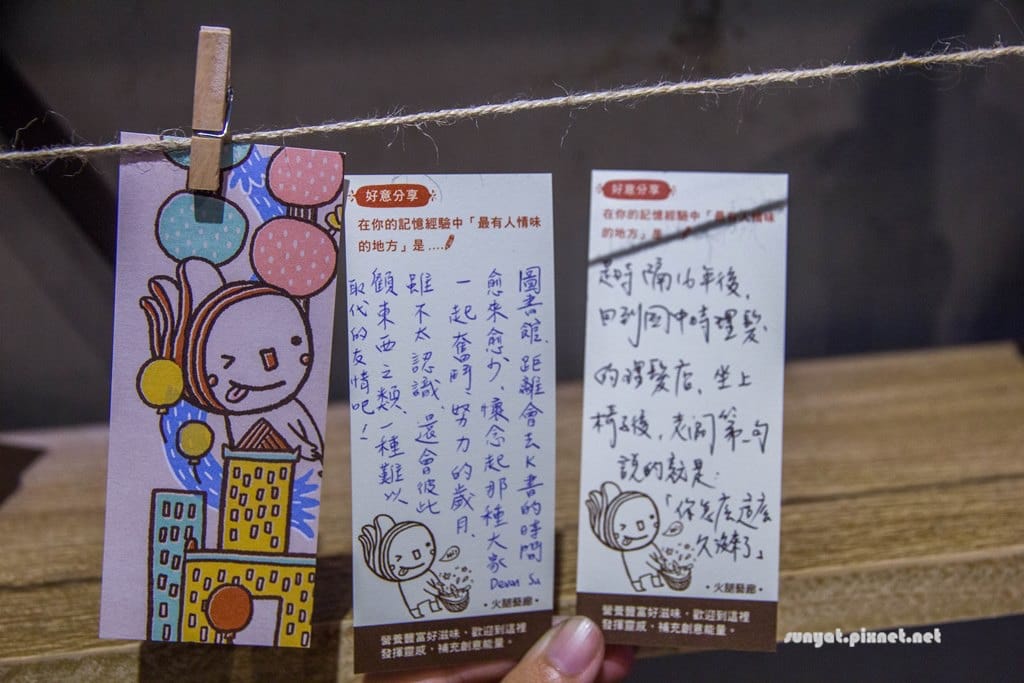 好意分享
在你的記憶經驗中「最有人情味
的地方」是....
圖書館.距離會去K書的時間
愈來愈少,懷念起那種大家
一起奮鬥、努力的歲月.
雖不太認識.還會彼此
顧東西之類.一種難以
取代的友情吧!
Devan Su
Hi!
·火腿藝廊·
營養豐富好滋味、歡迎到這裡
發揮靈感,補充創意能量。
好意分享
在你的記憶經驗中「最有人情味
的地方」是....
隔16年後,
回到國中時理髮
的理髮店,坐上
椅子後,老闆第一句
說的就是:
「你怎麼這麼
久沒來了」
·火腿藝廊·
營養豐富好滋味、歡迎到這裡
發揮靈感,補充創意能量。
sunyat.pixnet.net